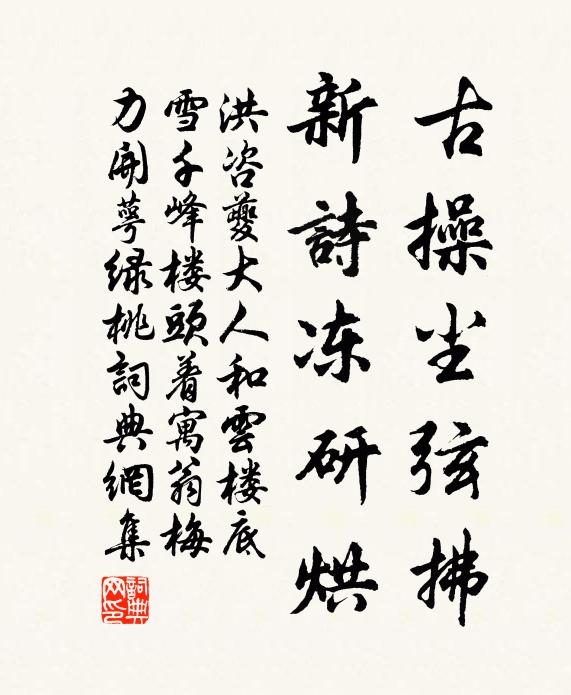 古操尘弦拂
新詩冻研烘
洪咨夔大人和雲楼底
雪千峰楼頭着寓翁梅
力開萼绿桃詞典網集
詞典
网印